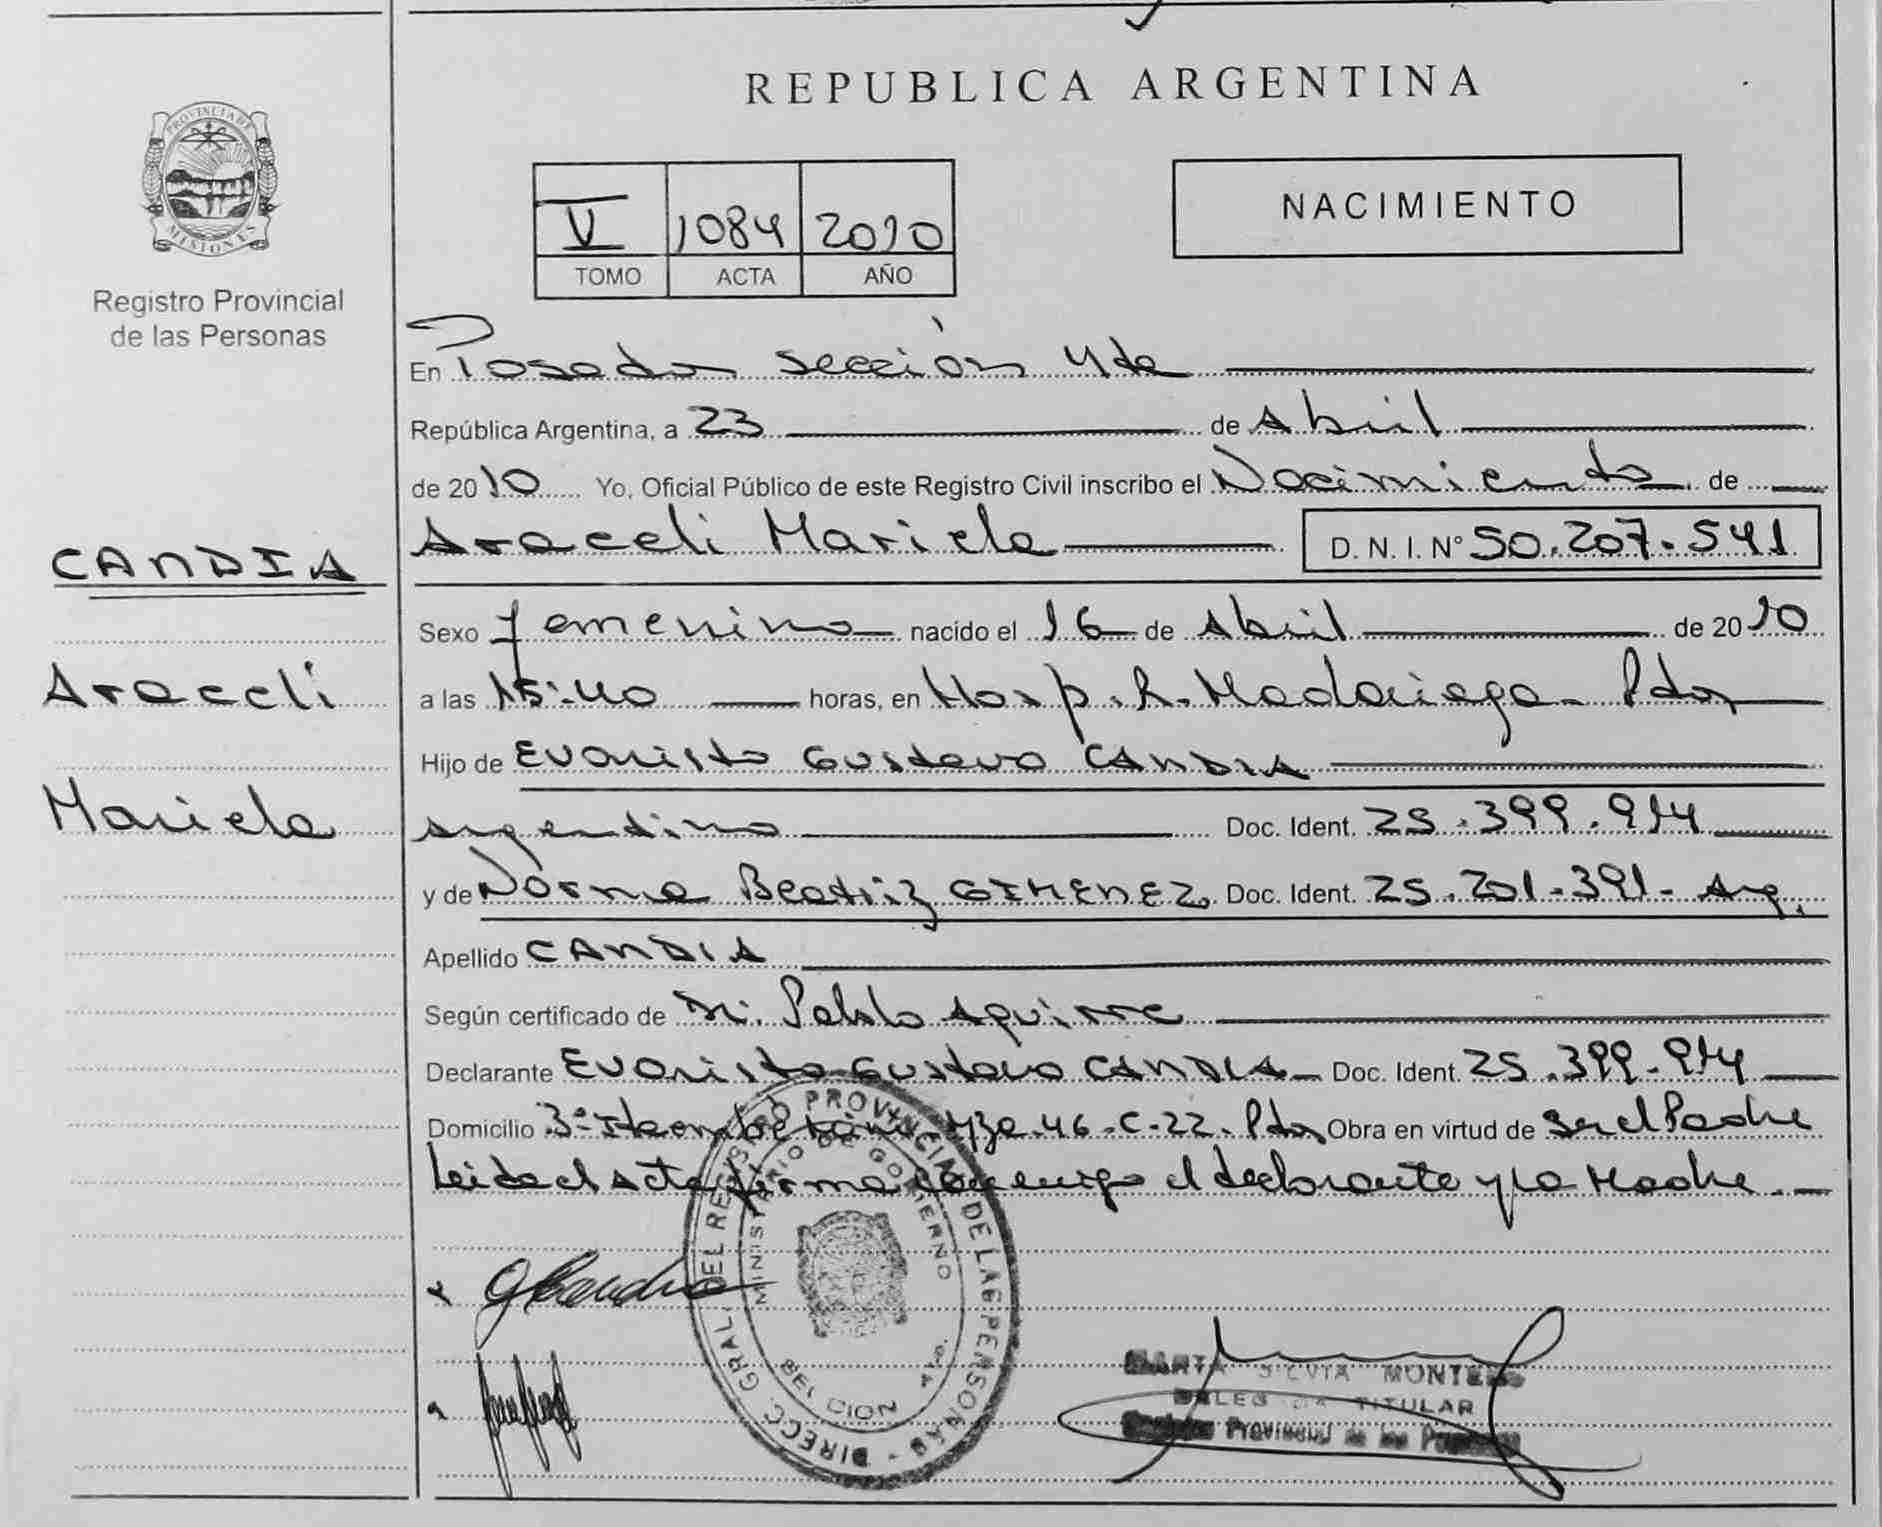 REPUBLICA ARGENTINA
PROVINCIA DE MISIONES
Registro Provincial
de las Personas
V 1084 2010
TOMO ACTA AÑO
NACIMIENTO
En Posadas sección 4ta
República Argentina, a 23 de Abril
de 2010 Yo, Oficial Público de este Registro Civil inscribo el Nacimiento de
Araceli Mariela D. N. I. N° 50.207.541
CANDIA
Araceli
Mariela
Sexo femenino nacido el 16 de Abril de 2010
a las 15:40 horas, en Hosp. R. Madariaga - Pdas
Hijo de Evaristo Gustavo CANDIA
argentino Doc. Ident. 25.399.914
y de Norma Beatriz GIMENEZ Doc. Ident. 25.201.391 - Arg.
Apellido CANDIA
Según certificado de Dr. Pablo Aguirre
Declarante Evaristo Gustavo CANDIA Doc. Ident. 25.399.914
Domicilio Mza. 46. C. 22. Pdas Obra en virtud de ser el Padre
Leida el acta firma conmigo el declarante y la Madre.
DIRECC. GRAL. DEL REGISTRO PROVINCIAL DE LAS PERSONAS
MINISTERIO DE GOBIERNO
MARTA SILVIA
TITULAR
Registro Provincial de las Personas